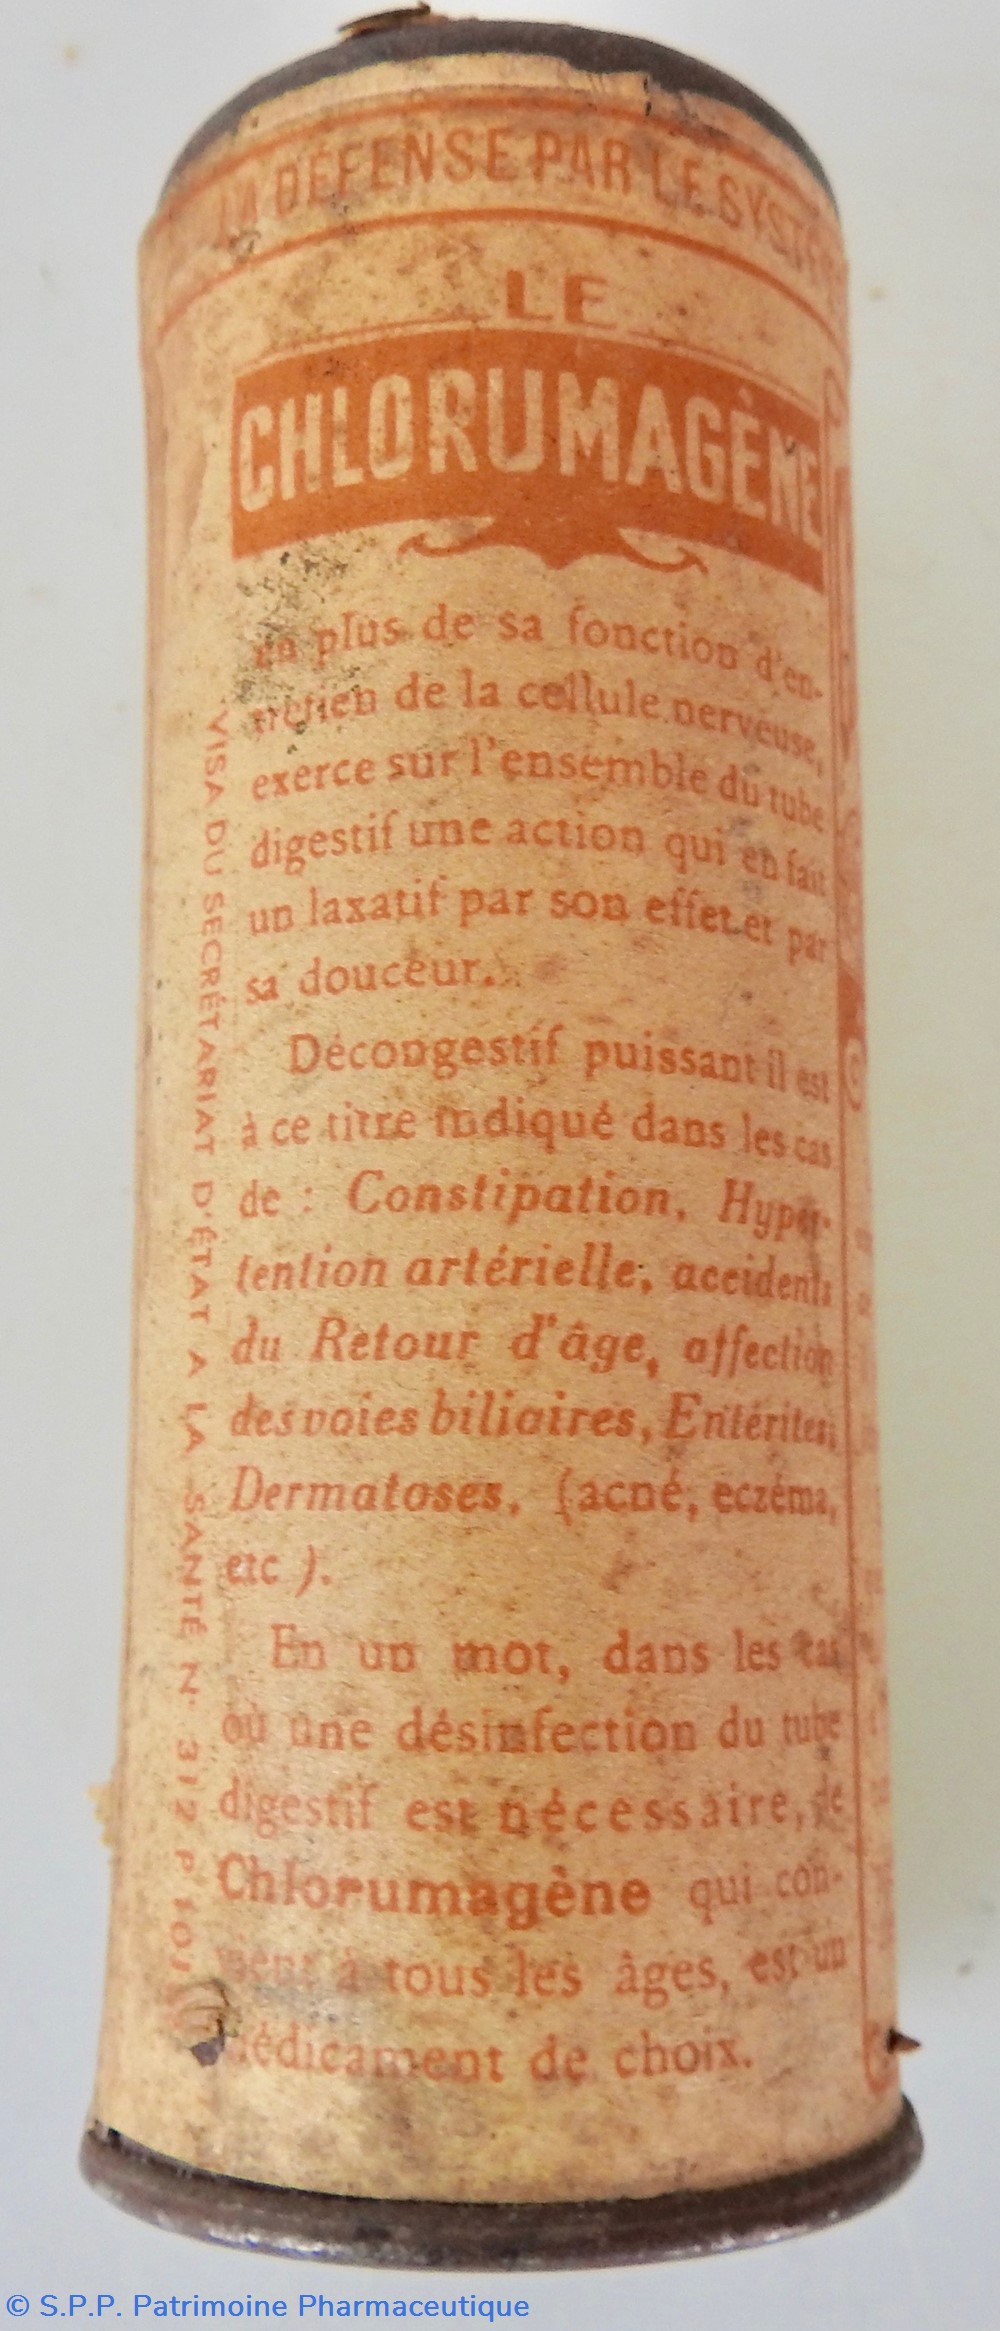 LA DÉFENSE PAR LE SYSTÈ
LE
CHLORUMAGÈNE
en plus de sa fonction d'en-
tretien de la cellule nerveuse,
exerce sur l'ensemble du tube
digestif une action qui en fait
un laxatif par son effet et par
sa douceur.
Décongestif puissant il est
à ce titre indiqué dans les cas
de : Constipation, Hyper-
tention artérielle, accidents
du Retour d'âge, affection
des voies biliaires, Entérites,
Dermatoses, (acné, eczéma,
etc ).
En un mot, dans les cas
où une désinfection du tube
digestif est nécessaire, le
Chlorumagène qui con-
vient à tous les âges, est un
médicament de choix.
VISA DU SECRÉTARIAT D'ÉTAT A LA SANTÉ N° 312 P
© S.P.P. Patrimoine Pharmaceutique